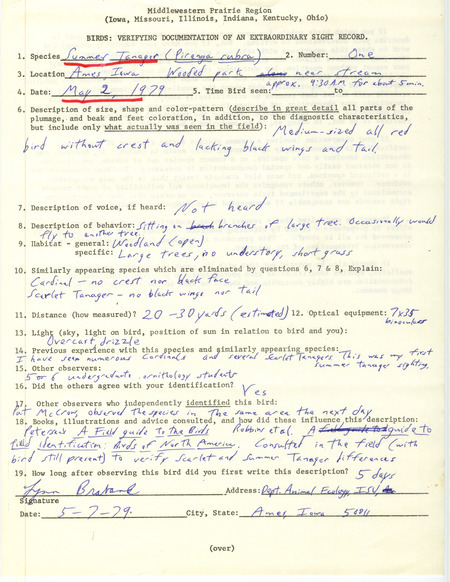 Middlewestern Prairie Region
(Iowa, Missouri, Illinois, Indiana, Kentucky, Ohio)
BIRDS: VERIFYING DOCUMENTATION OF AN EXTRAORDINARY SIGHT RECORD.
1. Species Summer Tanager (Piranga rubra) 2. Number: One
3. Location Ames, Iowa Wooded park near stream
approx. 9:30 AM for about 5 min.
4. Date: May 2, 1979 5. Time Bird seen: to
6. Description of size, shape and color-pattern (describe in great detail all parts of the
plumage, and beak and feet coloration, in addition, to the diagnostic characteristics,
but include only what actually was seen in the field): Medium-sized all red
bird without crest and lacking black wings and tail.
7. Description of voice, if heard: Not heard
8. Description of behavior: Sitting on branches of large tree. Occasionally would
fly to another tree.
9. Habitat - general: Woodland (open)
specific: Large trees, no understory, short grass
10. Similarly appearing species which are eliminated by questions 6, 7 & 8, Explain:
Cardinal - no crest nor black face
Scarlet Tanager - no black wings nor tail
11. Distance (how measured)? 20-30 yards (estimated) 12. Optical equipment: 7x35
binoculars
13. Light (sky, light on bird, position of sun in relation to bird and you):
Overcast, drizzle
14. Previous experience with this species and similarly appearing species:
I have seen numerous Cardinals and several Scarlet Tanagers This was my first
summer tanager sighting.
15. Other observers:
5 or 6 undergraduate ornithology students
16. Did the others agree with your identification? Yes
17. Other observers who independently identified this bird:
Pat McCrow, observed the species in the same area the next day
18. Books, illustrations and advice consulted, and how did these influence this description:
Peterson's A Field guide to the Birds Robbins et al. A guide to
field identification: Birds of North America. Consulted in the field (with
bird still present) to verify Scarlet and Summer Tanager differences
19. How long after observing this bird did you first write this description? 5 days
Lynn Braband Address: Dept. Animal Ecology, ISU,
Signature
Date: 5-7-79 City, State: Ames, Iowa 50011
(over)